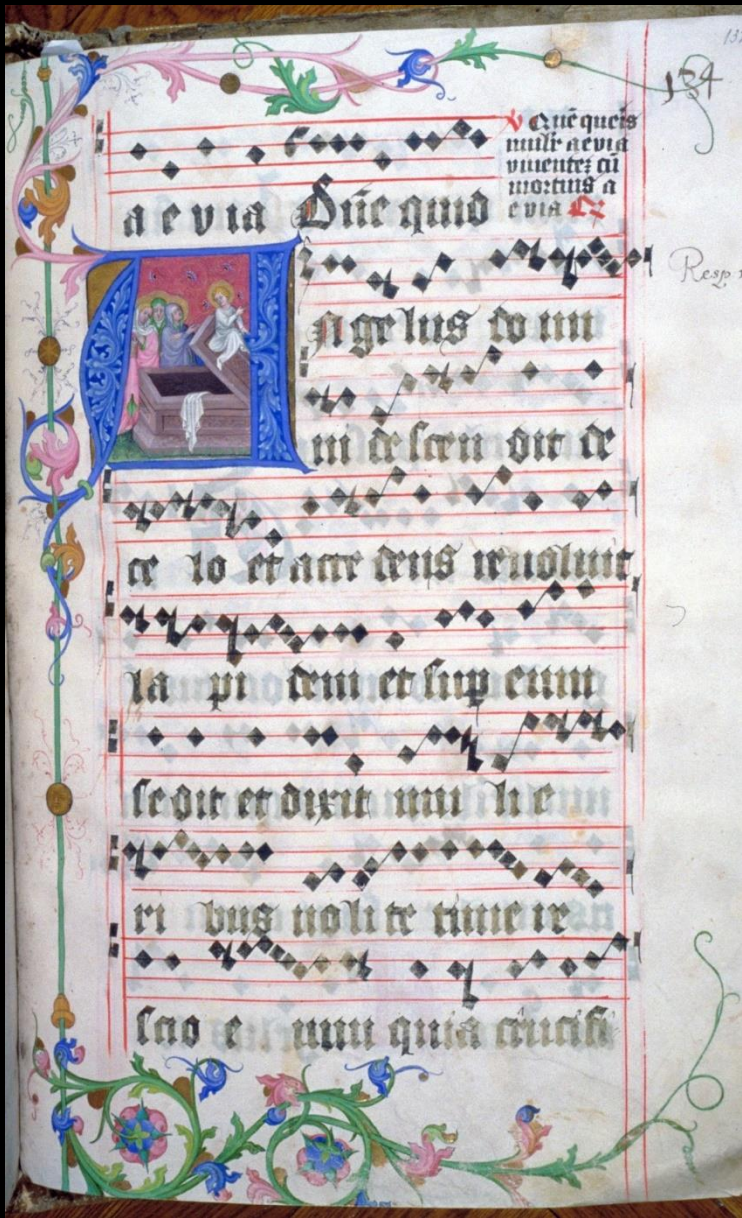 134
a e v ia Dūe quid
V Quē queris
mulr aevia
viventeʒ cū
mortuis a
evia
Resp.
Agelus do mi
ni de scen dit de
ce lo et acce dens revolvit
la pi dem et sup eum
se dit et dixit mu li e
ri bus nolite time re
scio e nim quia crucifi